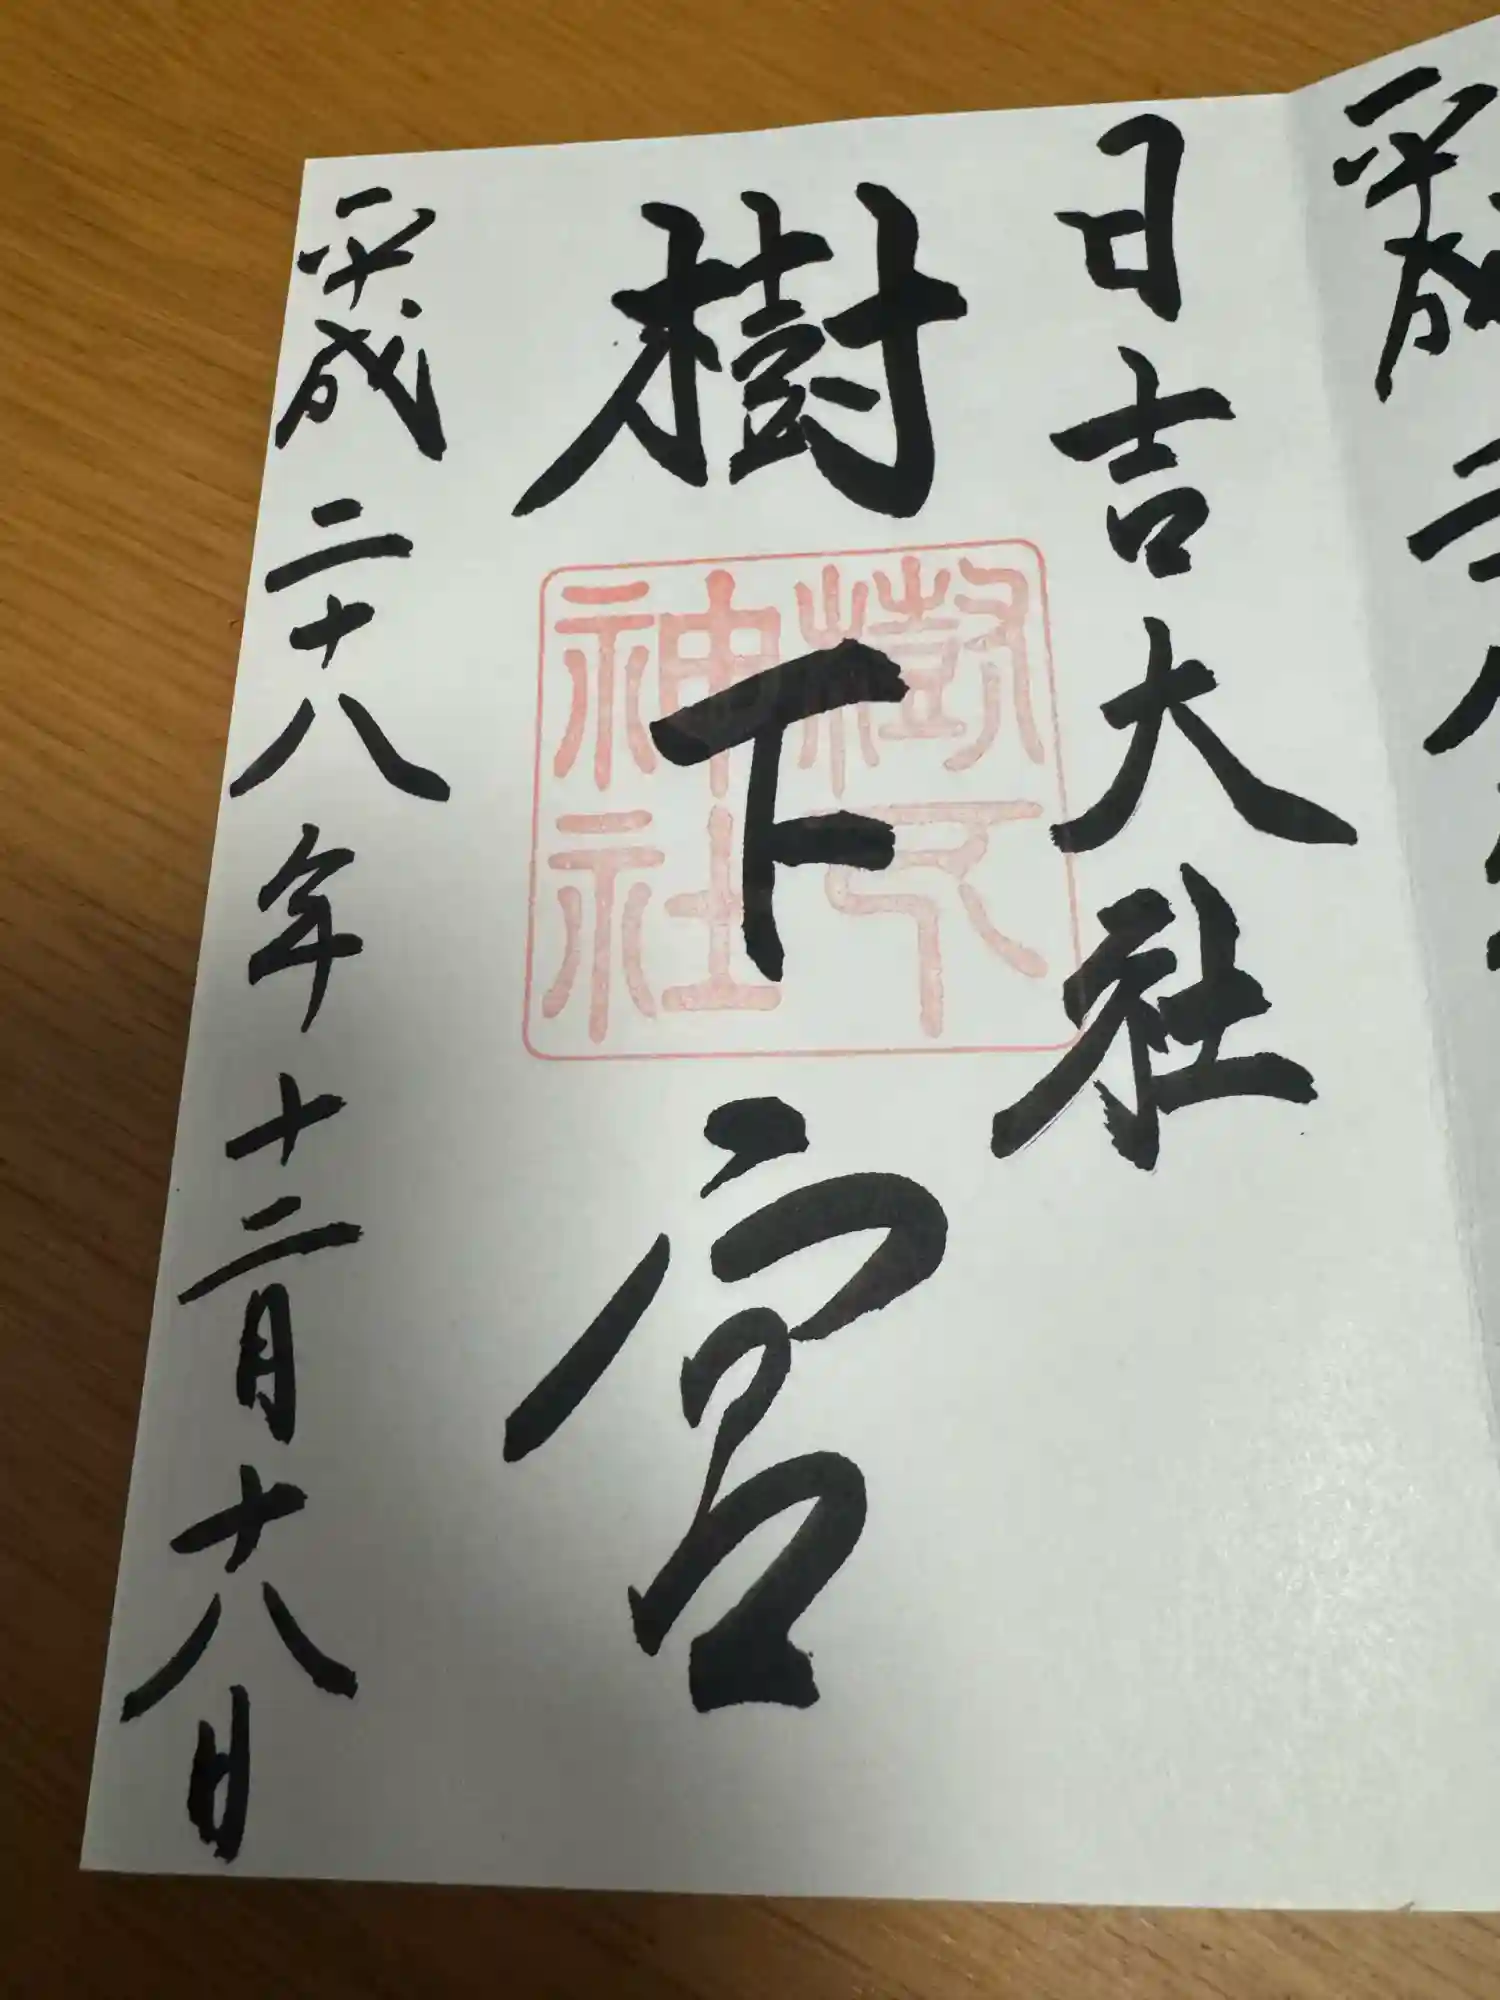 平成
日吉大社
樹下宮
樹下
神社
平成二十八年十二月十八日